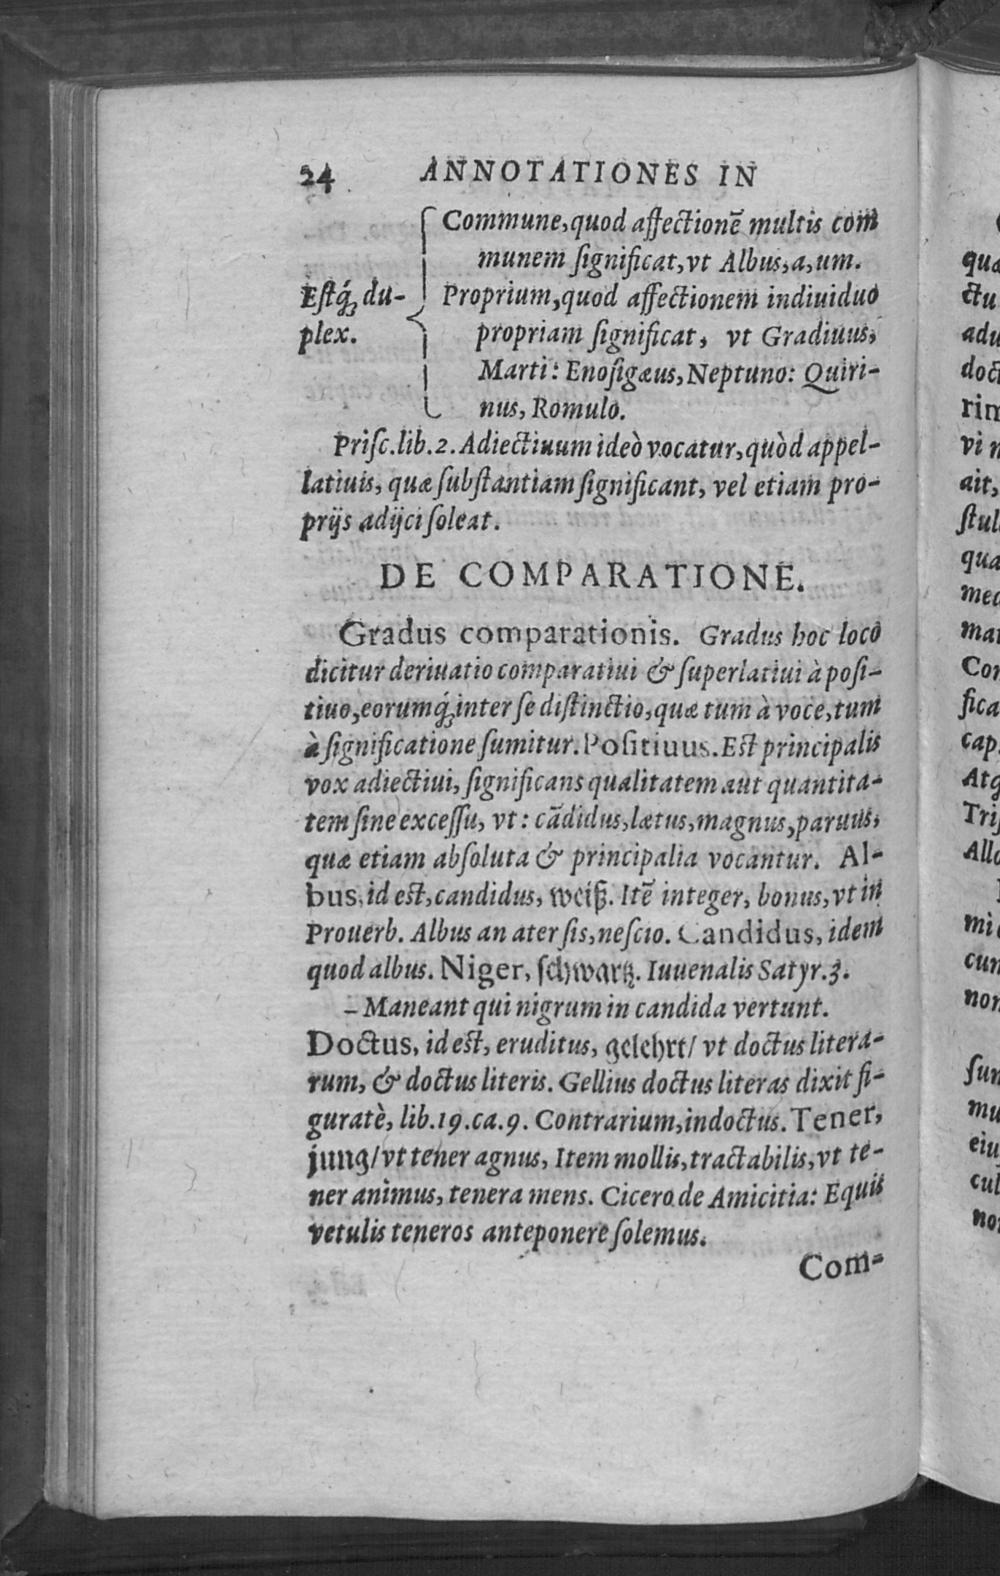 24 ANNOTATIONES IN
Commune, quod affectionē multis com
munem ſignificat, vt Albus, a, um.
Eſtq́; du-
plex.
Proprium, quod affectionem indiuiduo
propriam ſignificat, vt Gradiuus,
Marti: Enoſigæus, Neptuno: Quiri-
nus, Romulo.
Priſc. lib. 2. Adiectiuum ideò vocatur, quòd appel-
latiuis, quæ ſubſtantiam ſignificant, vel etiam pro-
prijs adijci ſoleat.
DE COMPARATIONE.
Gradus comparationis. Gradus hoc loco
dicitur deriuatio comparatiui & ſuperlatiui à poſi-
tiuo, eorumq́; inter ſe diſtinctio, quæ tum à voce, tum
à ſignificatione ſumitur. Poſitiuus. Eſt principalis
vox adiectiui, ſignificans qualitatem aut quantita-
tem ſine exceſſu, vt: cādidus, lætus, magnus, paruus,
quæ etiam abſoluta & principalia vocantur. Al-
bus, id eſt, candidus, weiß. Itē integer, bonus, vt in
Prouerb. Albus an ater ſis, neſcio. Candidus, idem
quod albus. Niger, ſchwartz. Iuuenalis Satyr. 3.
– Maneant qui nigrum in candida vertunt.
Doctus, id eſt, eruditus, gelehrt/ vt doctus litera-
rum, & doctus literis. Gellius doctus literas dixit fi-
guratè, lib. 19. ca. 9. Contrarium, indoctus. Tener,
jung/ vt tener agnus, Item mollis, tractabilis, vt te-
ner animus, tenera mens. Cicero de Amicitia: Equis
vetulis teneros anteponere ſolemus.
Com-